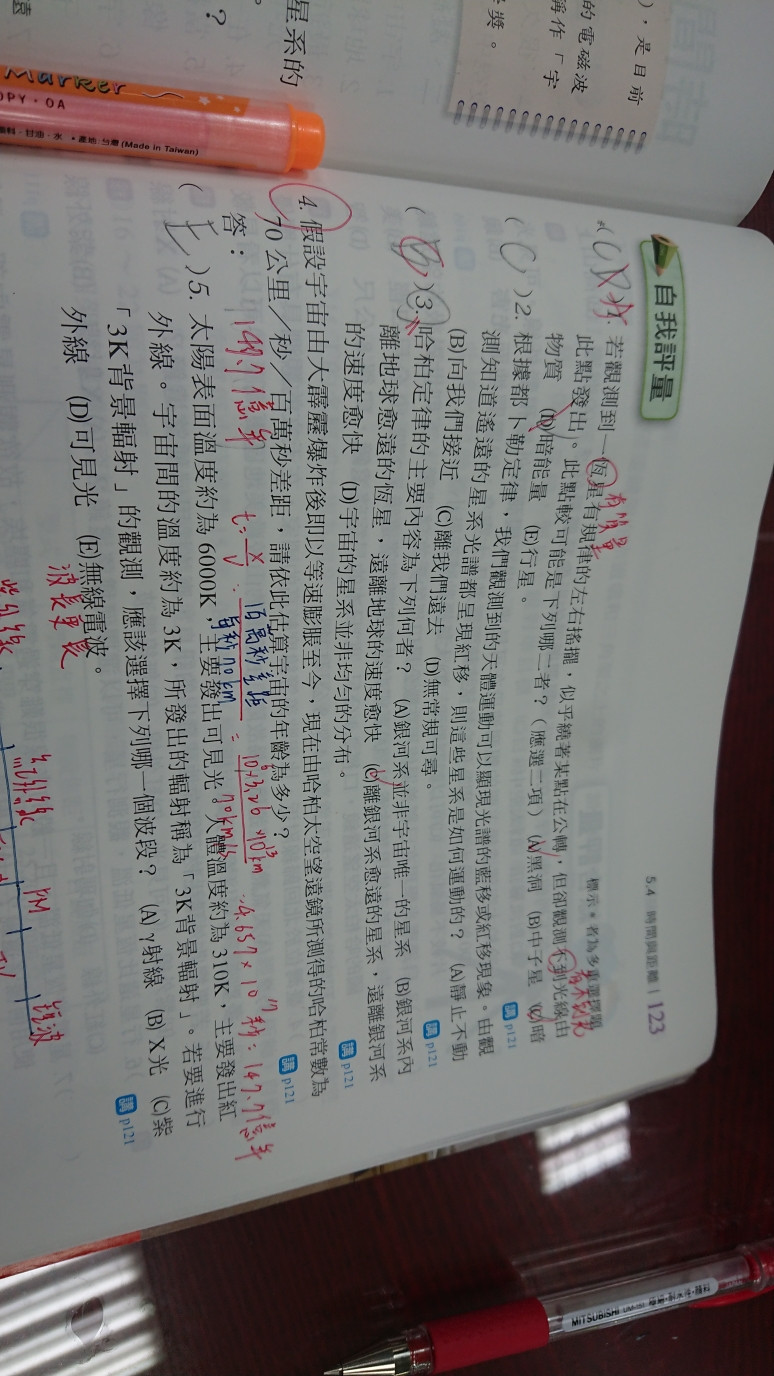 ），是目前
的電磁波
稱作「宇
獎。
星系的
？
Marker
OPY・OA
(Made in Taiwan)
5.4 時間與距離 | 123
自我評量
標示＊者為多重選擇題
1. 若觀測到一恆星有規律的左右搖擺，似乎繞著某點在公轉，但卻觀測不到光線由
此點發出。此點較可能是下列哪二者？（應選二項） (A)黑洞 (B)中子星 (C)暗
物質 (D)暗能量 (E)行星。
講 p121
( C )2. 根據都卜勒定律，我們觀測到的天體運動可以顯現光譜的藍移或紅移現象。由觀
測知道遙遠的星系光譜都呈現紅移，則這些星系是如何運動的？ (A)靜止不動
(B)向我們接近 (C)離我們遠去 (D)無常規可尋。
講 p121
3. 哈柏定律的主要內容為下列何者？ (A)銀河系並非宇宙唯一的星系 (B)銀河系內
離地球愈遠的恆星，遠離地球的速度愈快 (C)離銀河系愈遠的星系，遠離銀河系
的速度愈快 (D)宇宙的星系並非均勻的分布。
講 p121
4. 假設宇宙由大霹靂爆炸後即以等速膨脹至今，現在由哈柏太空望遠鏡所測得的哈柏常數為
70 公里／秒／百萬秒差距，請依此估算宇宙的年齡為多少？
講 p121
答：
百萬秒差距
每秒70 km
70 km/s
( E )5. 太陽表面溫度約為 6000K，主要發出可見光，人體溫度約為 310K，主要發出紅
外線。宇宙間的溫度約為 3K，所發出的輻射稱為「3K背景輻射」。若要進行
「3K背景輻射」的觀測，應該選擇下列哪一個波段？ (A) γ射線 (B) X光 (C)紫
外線 (D)可見光 (E)無線電波。
講 p121
波長更長
紅外線
FM
短波
TV
MITSUBISHI